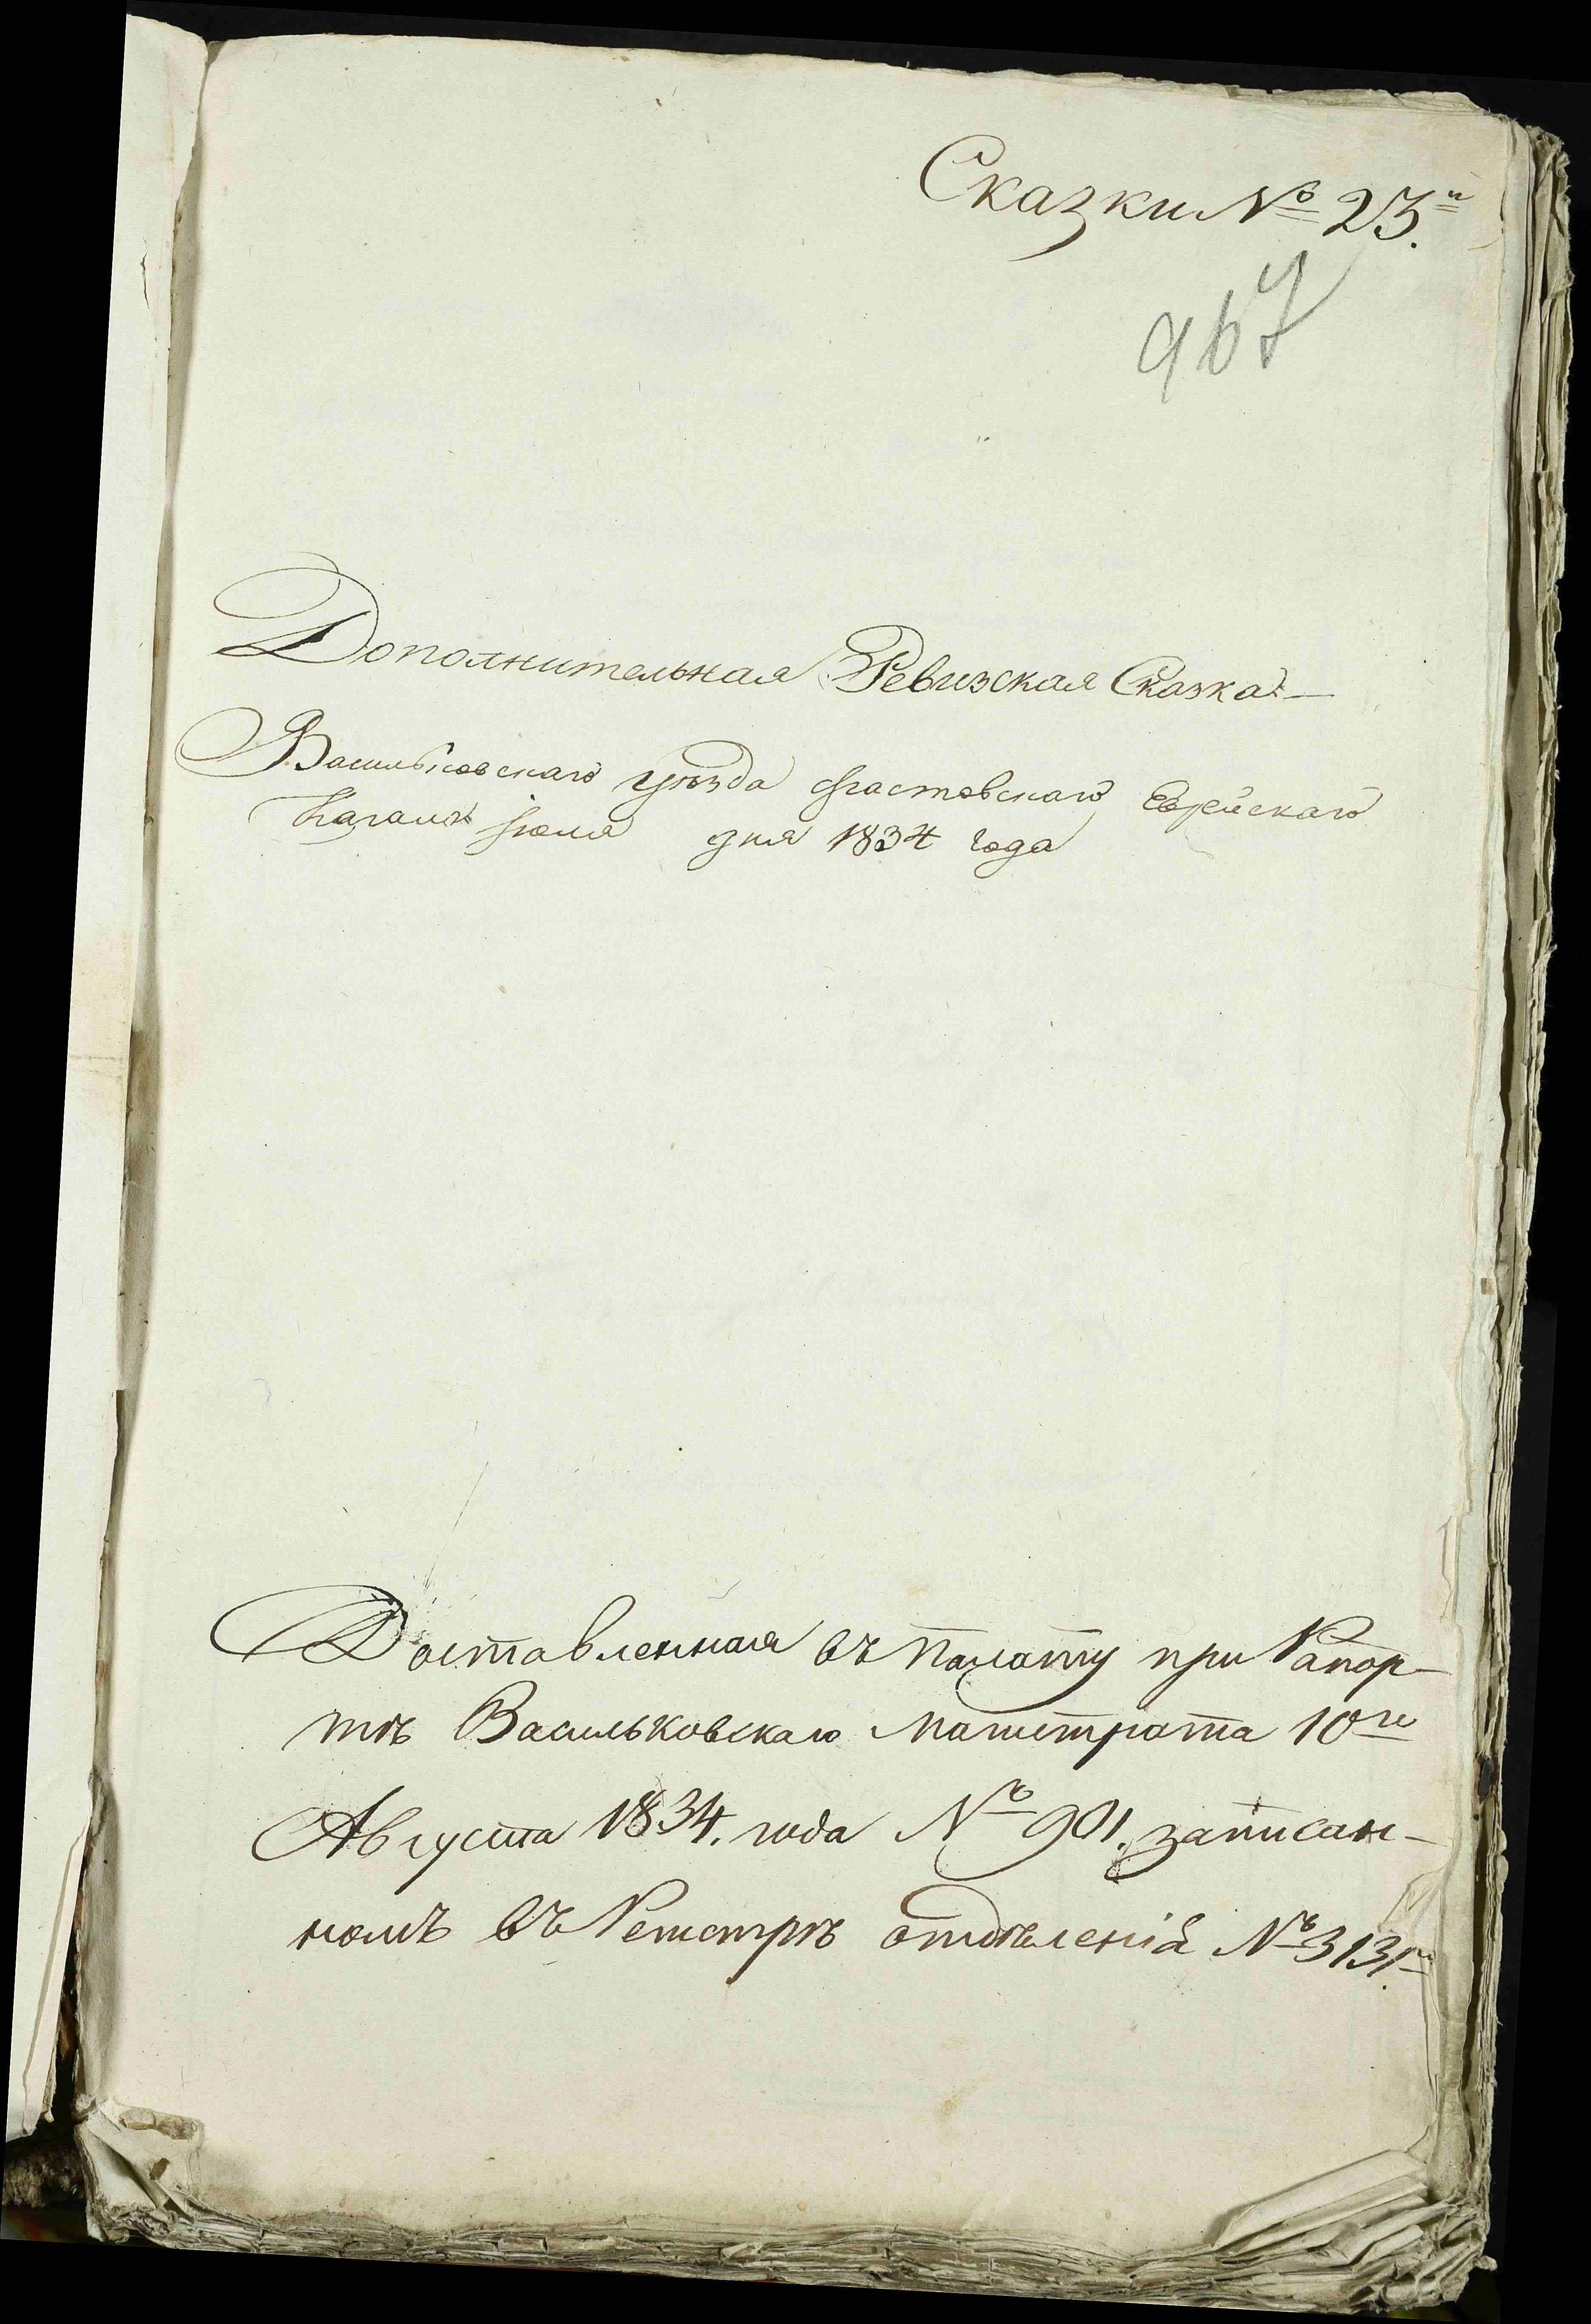 Сказки № 23.й
967
Дополнительная Ревизская Сказка
Васильковскаго уѣзда Фастовскаго Еврейскаго
Кагала Іюля дня 1834 года
Доставленная въ Палату при Рапор-
тѣ Васильковскаго Магистрата 10го
Августа 1834. года № 901. записан-
номъ въ Регистрѣ отдѣленія № 3131.